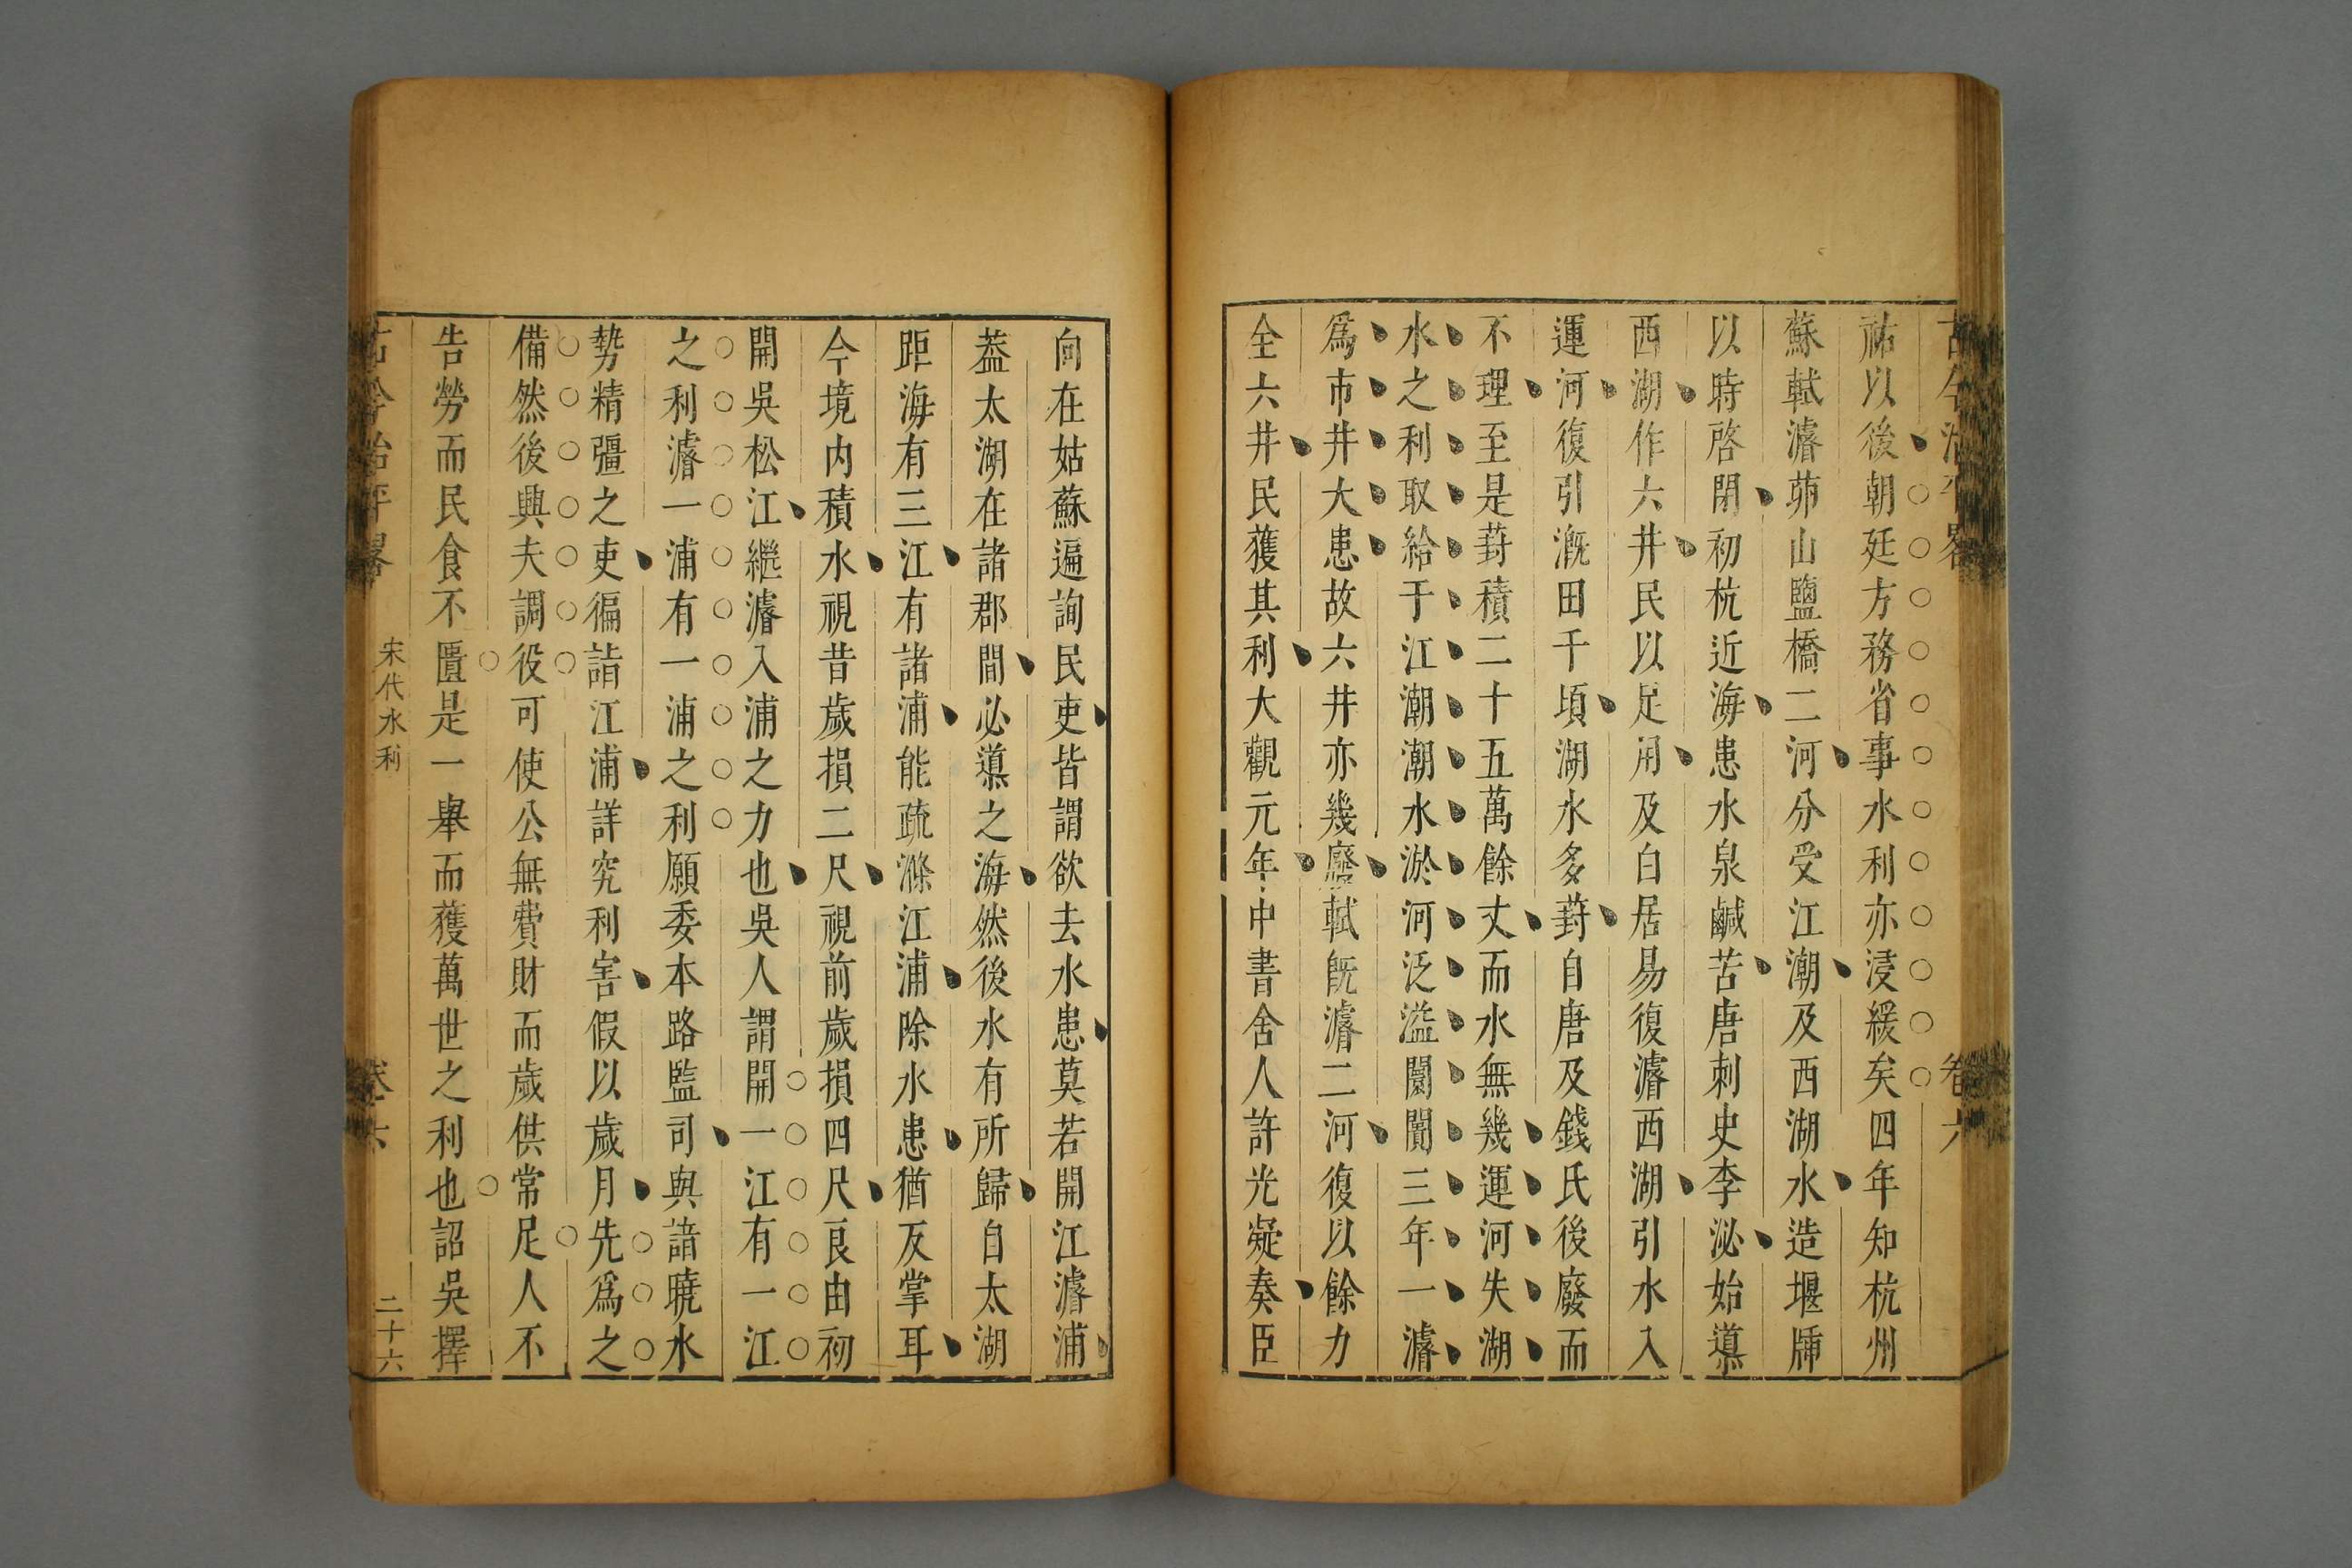 祐以後朝廷方務省事水利亦浸緩矣四年知杭州
蘇軾濬茆山鹽橋二河分受江潮及西湖水造堰牐
以時啓閉初杭近海患水泉鹹苦唐刺史李泌始導
西湖作六井民以足用及白居易復濬西湖引水入
運河復引漑田千頃湖水多葑自唐及錢氏後廢而
不理至是葑積二十五萬餘丈而水無幾運河失湖
水之利取給于江潮潮水淤河泛溢闤闠三年一濬
爲市井大患故六井亦幾廢軾旣濬二河復以餘力
全六井民獲其利大觀元年中書舍人許光凝奏臣
向在姑蘇遍詢民吏皆謂欲去水患莫若開江濬浦
葢太湖在諸郡間必導之海然後水有所歸自太湖
距海有三江有諸浦能疏滌江浦除水患猶反掌耳
今境内積水視昔歲損二尺視前歲損四尺良由初
開吳松江繼濬入浦之力也吳人謂開一江有一江
之利濬一浦有一浦之利願委本路監司與諳曉水
勢精彊之吏徧詣江浦詳究利害假以歲月先爲之
備然後興夫調役可使公無費財而歲供常足人不
告勞而民食不匱是一舉而獲萬世之利也詔吳擇
古今治平畧
宋代水利
卷六
二十六